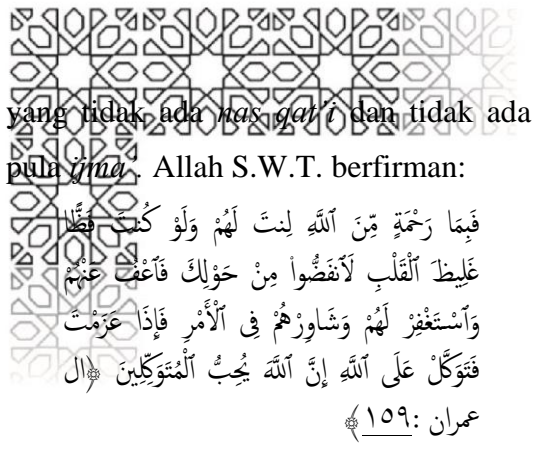 yang tidak ada nas qat'i dan tidak ada
pula ijma'. Allah S.W.T. berfirman:
فَبِمَا رَحْمَةٍ مِّنَ ٱللَّهِ لِنتَ لَهُمْ وَلَوْ كُنتَ فَظًّا
غَلِيظَ ٱلْقَلْبِ لَٱنفَضُّوا۟ مِنْ حَوْلِكَ فَٱعْفُ عَنْهُمْ
وَٱسْتَغْفِرْ لَهُمْ وَشَاوِرْهُمْ فِى ٱلْأَمْرِ فَإِذَا عَزَمْتَ
فَتَوَكَّلْ عَلَى ٱللَّهِ إِنَّ ٱللَّهَ يُحِبُّ ٱلْمُتَوَكِّلِينَ ﴿ال
عمران :١٥٩﴾